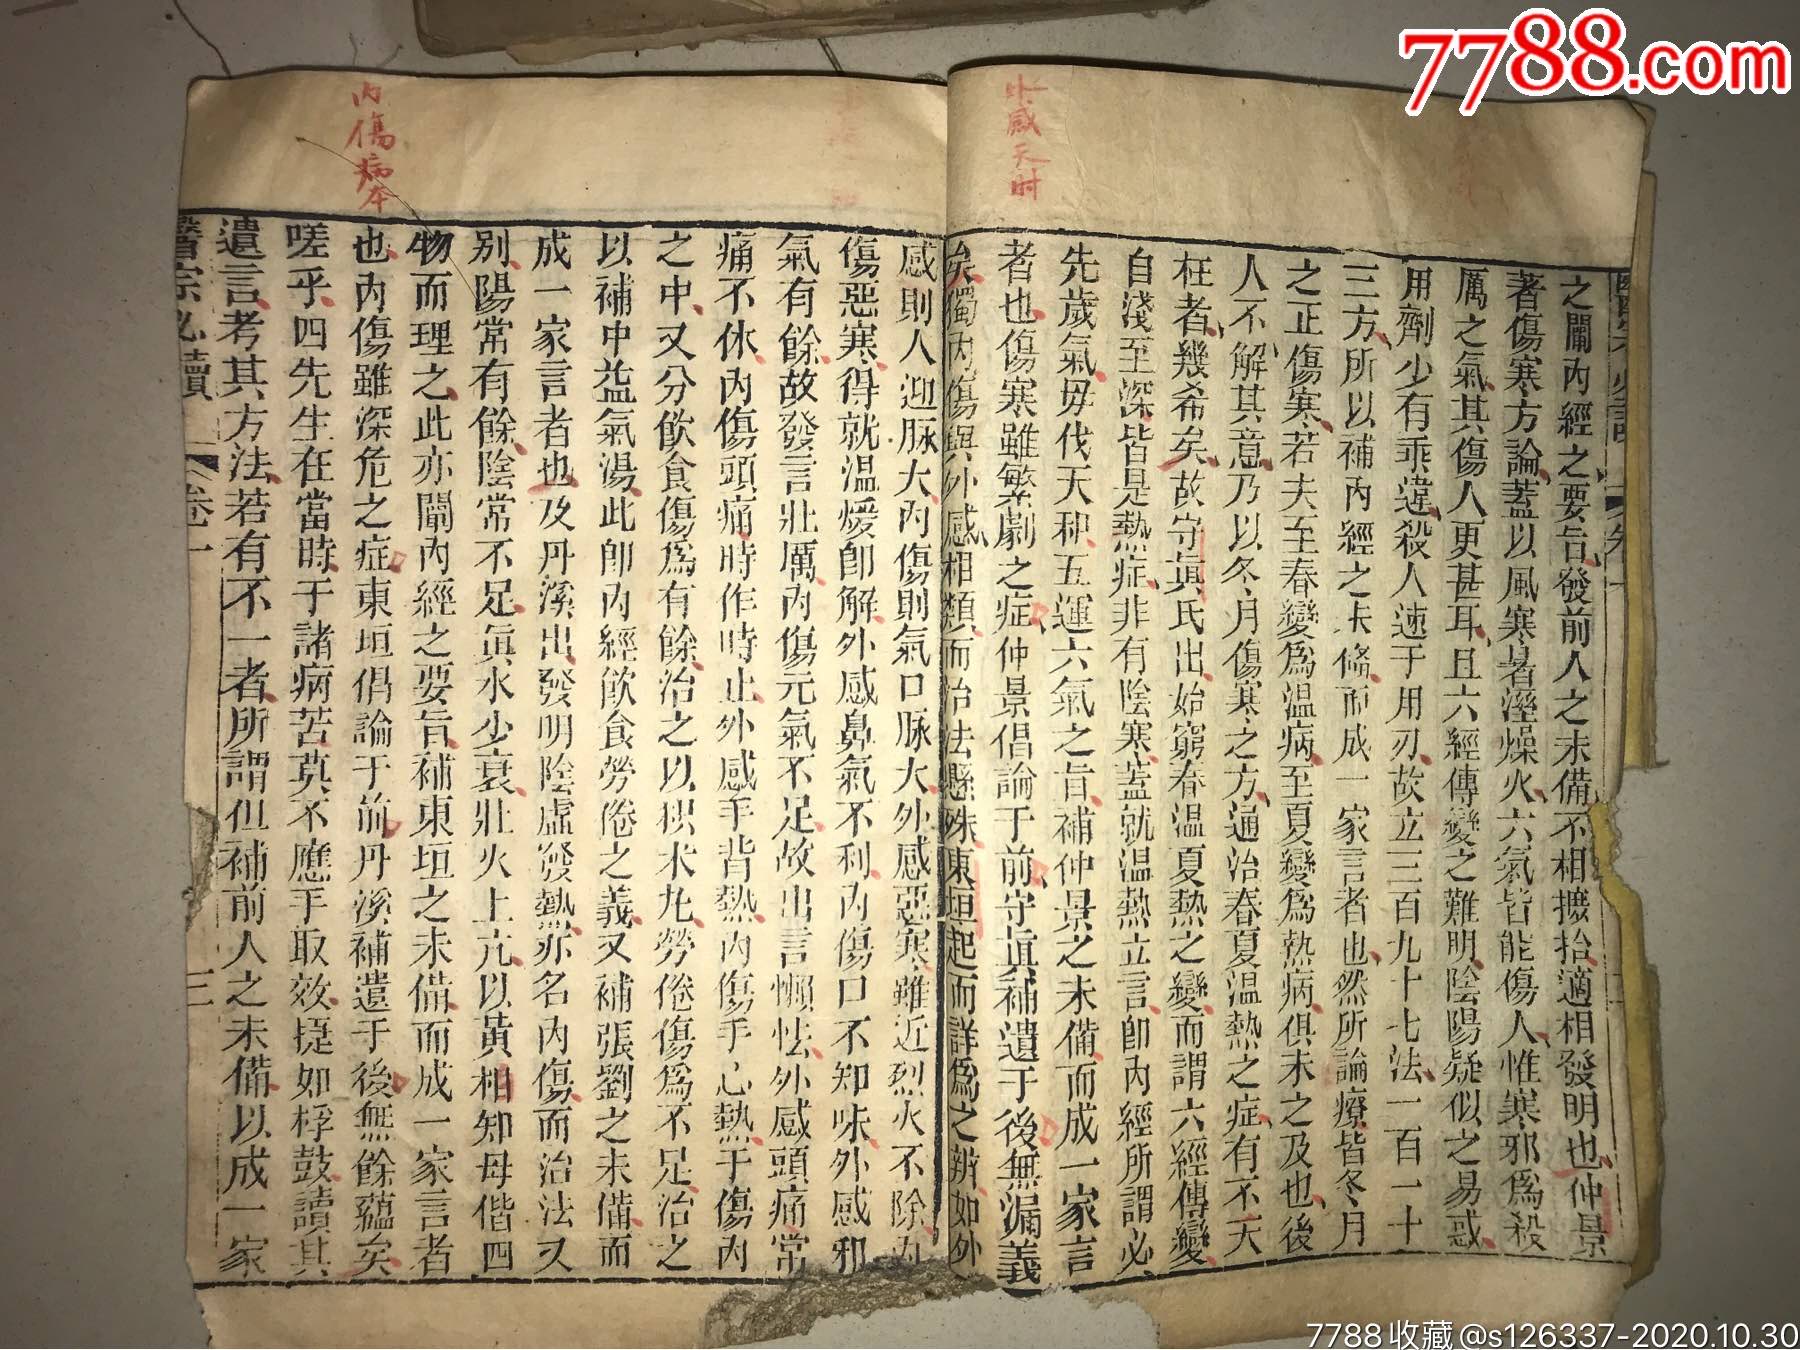 7788.com
外感天时
之闡內經之要旨發前人之未備不相摭拾適相發明也仲景
著傷寒方論蓋以風寒暑溼燥火六氣皆能傷人惟寒邪爲殺
厲之氣其傷人更甚耳且六經傳變之難明陰陽疑似之易惑
用劑少有乖違殺人速于用刃故立三百九十七法一百一十
三方所以補內經之未備而成一家言者也然所論療皆冬月
之正傷寒若夫至春變爲温病至夏變爲熱病俱未之及也後
人不解其意乃以冬月傷寒之方通治春夏温熱之症有不夭
枉者幾希矣故守眞氏出始窮春温夏熱之變而謂六經傳變
自淺至深皆是熱症非有陰寒蓋就温熱立言卽內經所謂必
先歲氣毋伐天和五運六氣之旨補仲景之未備而成一家言
者也傷寒雖繁劇之症仲景倡論于前守眞補遺于後無漏義
矣獨內傷與外感相類而治法懸殊東垣起而詳爲之辨如外
內傷病本
感則人迎脉大內傷則氣口脉大外感惡寒雖近烈火不除內
傷惡寒得就温煖卽解外感鼻氣不利內傷口不知味外感邪
氣有餘故發言壯厲內傷元氣不足故出言懶怯外感頭痛常
痛不休內傷頭痛時作時止外感手背熱內傷手心熱于傷內
之中又分飲食傷爲有餘治之以枳术丸勞倦傷爲不足治之
以補中益氣湯此卽內經飲食勞倦之義又補張劉之未備而
成一家言者也及丹溪出發明陰虛發熱亦名內傷而治法又
别陽常有餘陰常不足眞水少衰壯火上亢以黃相知母偕四
物而理之此亦闡內經之要旨補東垣之未備而成一家言者
也內傷雖深危之症東垣倡論于前丹溪補遺于後無餘蘊矣
嗟乎四先生在當時于諸病苦莫不應手取效捷如桴鼓讀其
遺言考其方法若有不一者所謂但補前人之未備以成一家
醫宗必讀 卷一 三
7788收藏@s126337-2020.10.30